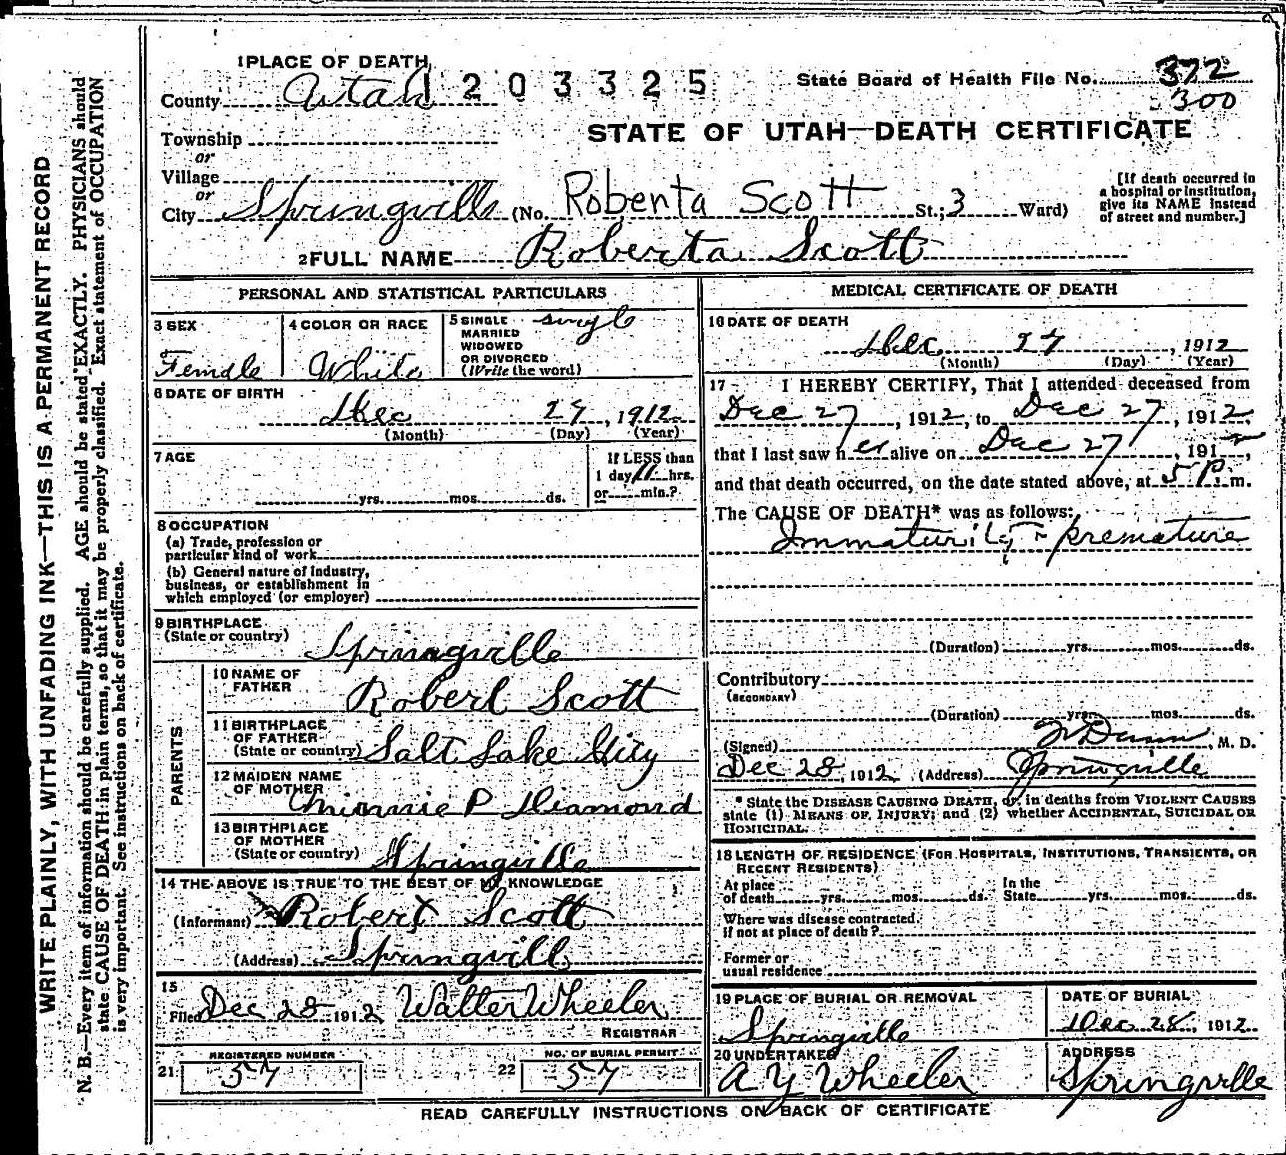 1 PLACE OF DEATH
1203325
State Board of Health File No. 372
300
County Utah
STATE OF UTAH—DEATH CERTIFICATE
Township
or
Village
or
City Springville (No. Roberta Scott St.; 3 Ward)
[If death occurred in
a hospital or institution,
give its NAME instead
of street and number.]
2 FULL NAME Roberta Scott
PERSONAL AND STATISTICAL PARTICULARS
3 SEX
Female
4 COLOR OR RACE
White
5 SINGLE single
MARRIED
WIDOWED
OR DIVORCED
(Write the word)
6 DATE OF BIRTH
Dec 27, 1912
(Month) (Day) (Year)
7 AGE
If LESS than
1 day 11 hrs.
or min.?
yrs. mos. ds.
8 OCCUPATION
(a) Trade, profession or
particular kind of work
(b) General nature of industry,
business, or establishment in
which employed (or employer)
9 BIRTHPLACE
(State or country) Springville
PARENTS
10 NAME OF
FATHER Robert Scott
11 BIRTHPLACE
OF FATHER
(State or country) Salt Lake City
12 MAIDEN NAME
OF MOTHER Minnie P Diamond
13 BIRTHPLACE
OF MOTHER
(State or country) Springville
14 THE ABOVE IS TRUE TO THE BEST OF MY KNOWLEDGE
(Informant) Robert Scott
(Address) Springvill
15
Filed Dec 28 1912 Walter Wheeler
REGISTRAR
REGISTERED NUMBER
21 57
NO. OF BURIAL PERMIT
22 57
MEDICAL CERTIFICATE OF DEATH
16 DATE OF DEATH
Dec 27, 1912
(Month) (Day) (Year)
17 I HEREBY CERTIFY, That I attended deceased from
Dec 27, 1912, to Dec 27, 1912,
that I last saw her alive on Dec 27, 1912,
and that death occurred, on the date stated above, at 5 P. m.
The CAUSE OF DEATH* was as follows:
Immaturity - premature
(Duration) yrs. mos. ds.
Contributory
(SECONDARY)
(Duration) yrs. mos. ds.
(Signed) Dunn, M. D.
Dec 28, 1912 (Address) Springville
* State the DISEASE CAUSING DEATH, or, in deaths from VIOLENT CAUSES
state (1) MEANS OF INJURY; and (2) whether ACCIDENTAL, SUICIDAL OR
HOMICIDAL.
18 LENGTH OF RESIDENCE (FOR HOSPITALS, INSTITUTIONS, TRANSIENTS, OR
RECENT RESIDENTS)
At place
of death yrs. mos. ds.
In the
State yrs. mos. ds.
Where was disease contracted,
if not at place of death?
Former or
usual residence
19 PLACE OF BURIAL OR REMOVAL
Springville
DATE OF BURIAL
Dec 28, 1912
20 UNDERTAKER
A Y Wheeler
ADDRESS
Springville
READ CAREFULLY INSTRUCTIONS ON BACK OF CERTIFICATE
WRITE PLAINLY, WITH UNFADING INK—THIS IS A PERMANENT RECORD
N. B.—Every item of information should be carefully supplied. AGE should be stated EXACTLY. PHYSICIANS should
state CAUSE OF DEATH in plain terms, so that it may be properly classified. Exact statement of OCCUPATION
is very important. See instructions on back of certificate.